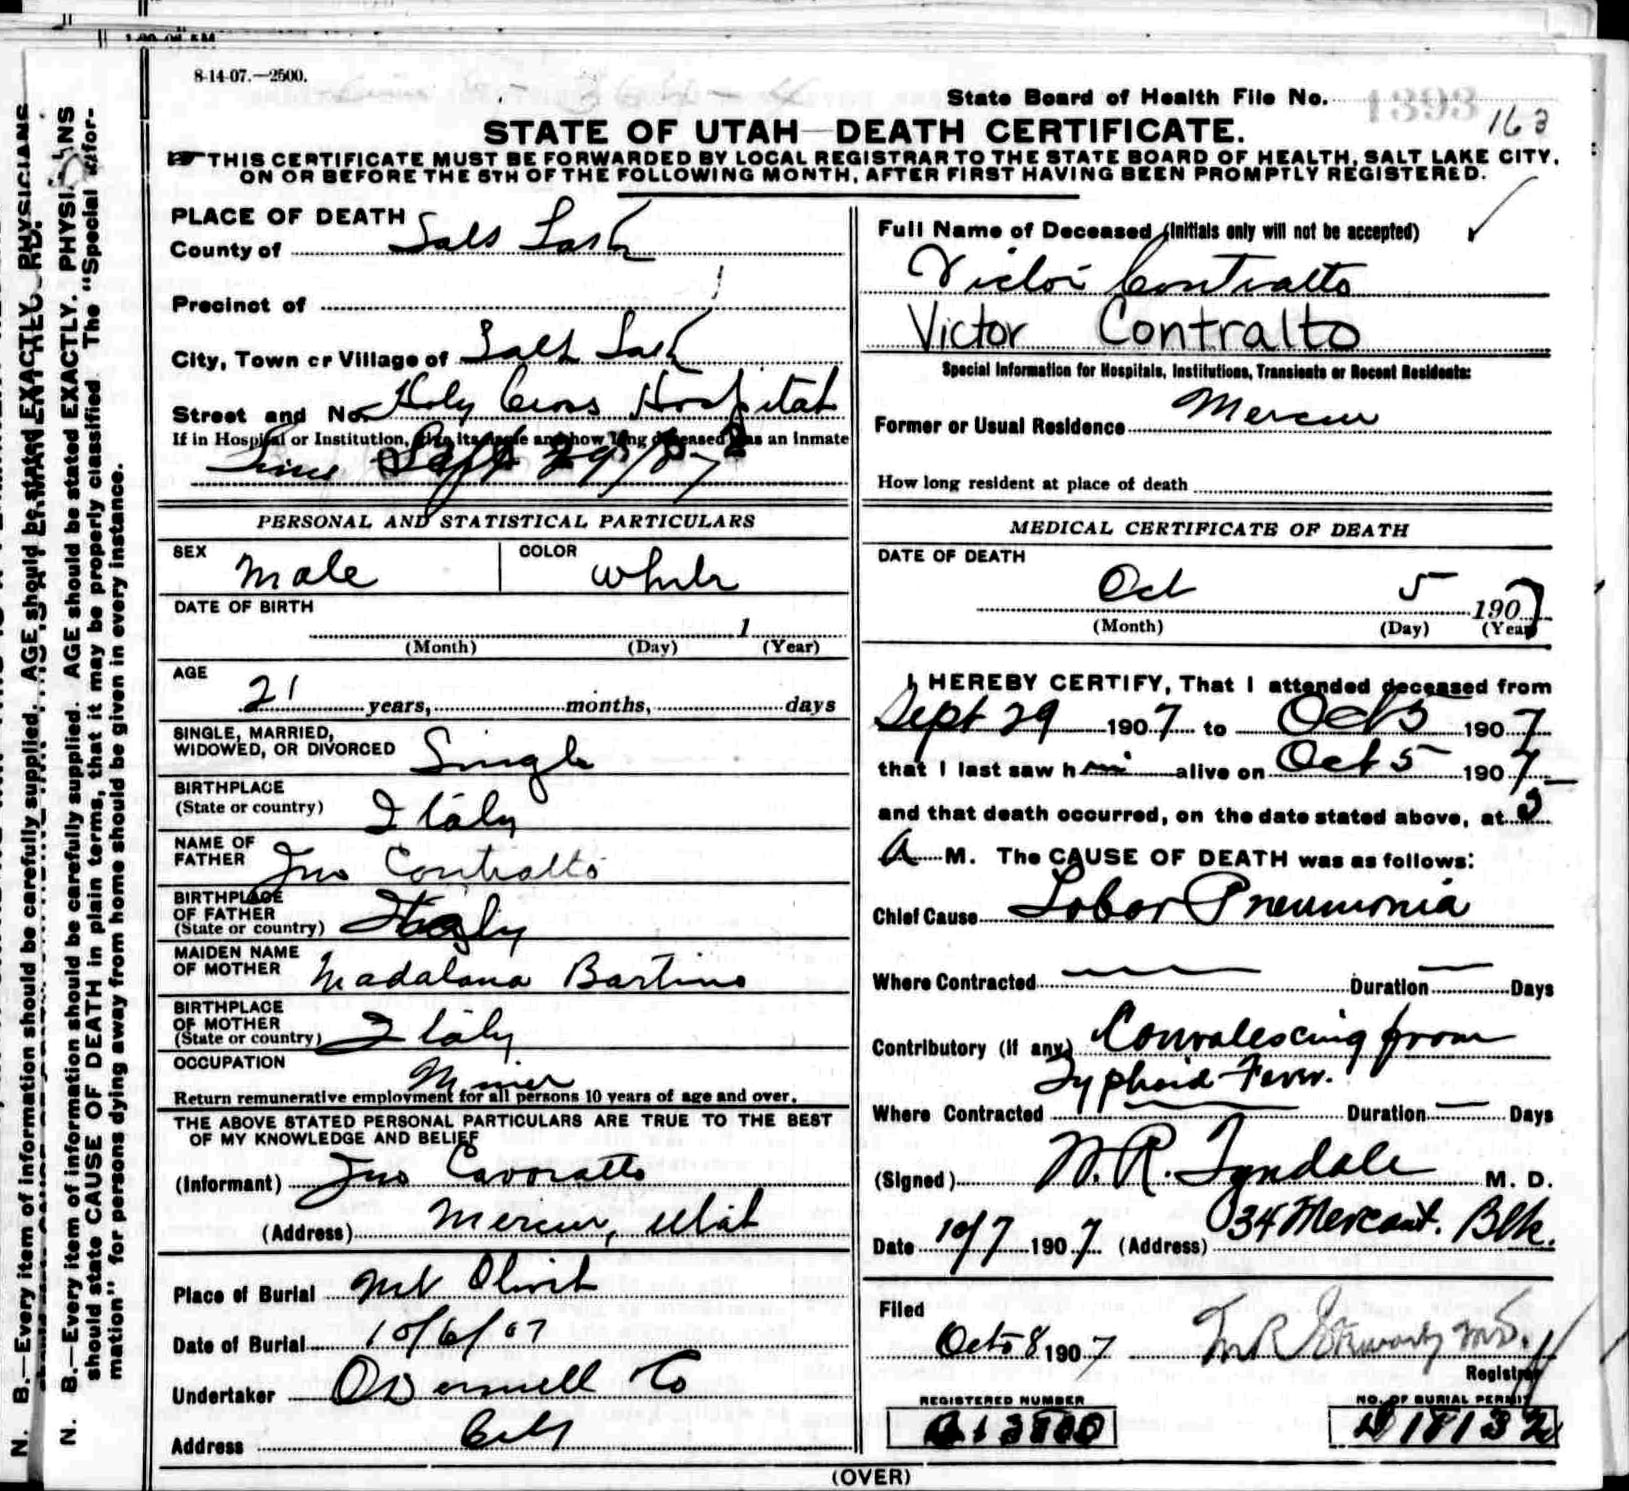 8-14-07.—2500.
State Board of Health File No. 1393
163
STATE OF UTAH—DEATH CERTIFICATE.
THIS CERTIFICATE MUST BE FORWARDED BY LOCAL REGISTRAR TO THE STATE BOARD OF HEALTH, SALT LAKE CITY,
ON OR BEFORE THE 5TH OF THE FOLLOWING MONTH, AFTER FIRST HAVING BEEN PROMPTLY REGISTERED.
PLACE OF DEATH
County of Salt Lake
Precinct of
City, Town or Village of Salt Lake
Street and No. Holy Cross Hospital
If in Hospital or Institution, give its name and how long deceased was an Inmate
Since Sept 29/07
PERSONAL AND STATISTICAL PARTICULARS
SEX Male COLOR White
DATE OF BIRTH
1
(Month) (Day) (Year)
AGE
21 years, months, days
SINGLE, MARRIED,
WIDOWED, OR DIVORCED Single
BIRTHPLACE
(State or country) Italy
NAME OF
FATHER Jno Contralto
BIRTHPLACE
OF FATHER
(State or country) Italy
MAIDEN NAME
OF MOTHER Madalana Bartino
BIRTHPLACE
OF MOTHER
(State or country) Italy
OCCUPATION
Miner
Return remunerative employment for all persons 10 years of age and over.
THE ABOVE STATED PERSONAL PARTICULARS ARE TRUE TO THE BEST
OF MY KNOWLEDGE AND BELIEF
(Informant) Jno Cavoratto
(Address) Mercur, Utah
Place of Burial Mt Olivet
Date of Burial 10/6/07
Undertaker O'Donnell Co
Address City
Full Name of Deceased (Initials only will not be accepted)
Victor Contralto
Victor Contralto
Special Information for Hospitals, Institutions, Transients or Recent Residents:
Former or Usual Residence Mercur
How long resident at place of death
MEDICAL CERTIFICATE OF DEATH
DATE OF DEATH
Oct 5 1907
(Month) (Day) (Year)
I HEREBY CERTIFY, That I attended deceased from
Sept 29 1907 to Oct 5 1907
that I last saw him alive on Oct 5 1907
and that death occurred, on the date stated above, at 5
A M. The CAUSE OF DEATH was as follows:
Chief Cause Lobar Pneumonia
Where Contracted — Duration — Days
Contributory (if any) Convalescing from
Typhoid Fever.
Where Contracted — Duration — Days
(Signed) W. R. Tyndale M. D.
Date 10/7 1907 (Address) 034 Mercant. Blk.
Filed
Oct 8 1907
Registrar
REGISTERED NUMBER
NO. OF BURIAL PERMIT
18132
(OVER)
N. B.—Every item of information should be carefully supplied. AGE should be stated EXACTLY. PHYSICIANS
should state CAUSE OF DEATH in plain terms, that it may be properly classified. The "Special Infor-
mation" for persons dying away from home should be given in every instance.
N. B.—Every item of information should be carefully supplied. AGE should be stated EXACTLY. PHYSICIANS